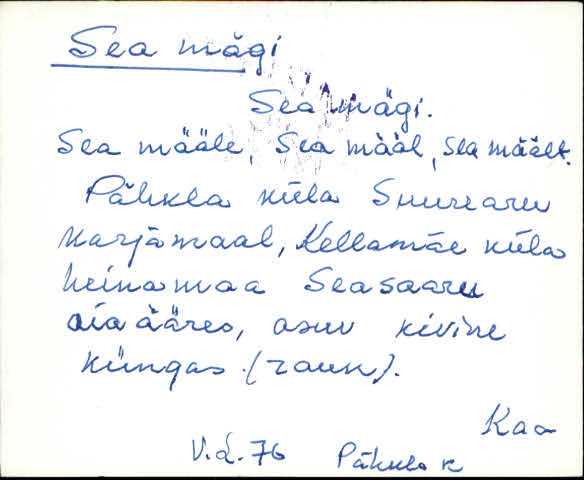 Sea mägi
Sea mägi.
Sea määle, Sea määl, Sea mäält.
Pähkla küla Suurearu
karjamaal, Kellamäe küla
heinamaa Seasaaru
aia ääres, asuv kivine
küngas (raun).
Kaa
V.L.76 Pähkla k